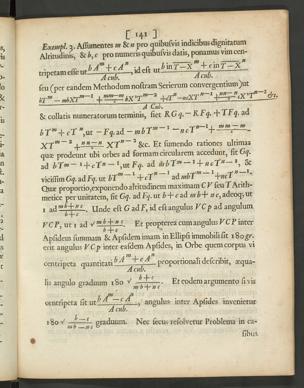 [ 141 ]
Exempl. 3. Assumentes m & n pro quibusvis indicibus dignitatum
Altitudinis, & b, c pro numeris quibusvis datis, ponamus vim cen-
tripetam esse ut b A^m + c A^n / A cub., id est ut b in T-X^m + c in T-X^n / A cub.
seu (per eandem Methodum nostram Serierum convergentium) ut
bT^m - mbXT^m-1 + mm-m/2 bX²T^m-2 + cT^n - ncXT^n-1 + nn-n/2 cX²T^n-2 &c. / A Cub.
& collatis numeratorum terminis, fiet RGq. - RFq. + TFq. ad
bT^m + cT^n, ut - Fq. ad - mbT^m-1 - ncT^n-1 + mm-m/2
XT^m-2 + nn-n/2 XT^n-2 &c. Et sumendo rationes ultimas
quæ prodeunt ubi orbes ad formam circularem accedunt, fit Gq.
ad bT^m-1 + cT^n-1, ut Fq. ad mbT^m-1 + ncT^n-1, &
vicissim Gq. ad Fq. ut bT^m-1 + cT^n-1 ad mbT^m-1 + ncT^n-1.
Quæ proportio, exponendo altitudinem maximam CV seu T Arith-
metice per unitatem, fit Gq. ad Fq. ut b+c ad mb+nc, adeoq; ut
1 ad mb+nc / b+c. Unde est G ad F, id est angulus VCp ad angulum
VCP, ut 1 ad √ mb+nc / b+c. Et propterea cum angulus VCP inter
Apsidem summam & Apsidem imam in Ellipsi immobili sit 180 gr.
erit angulus VCp inter easdem Apsides, in Orbe quem corpus vi
centripeta quantitati b A^m + c A^n / A cub. proportionali describit, æqua-
lis angulo graduum 180 √ b+c / mb+nc. Et eodem argumento si vis
centripeta sit ut b A^m - c A^n / A cub., angulus inter Apsides invenietur
180 √ b-c / mb-nc graduum. Nec secus resolvetur Problema in ca-
sibus